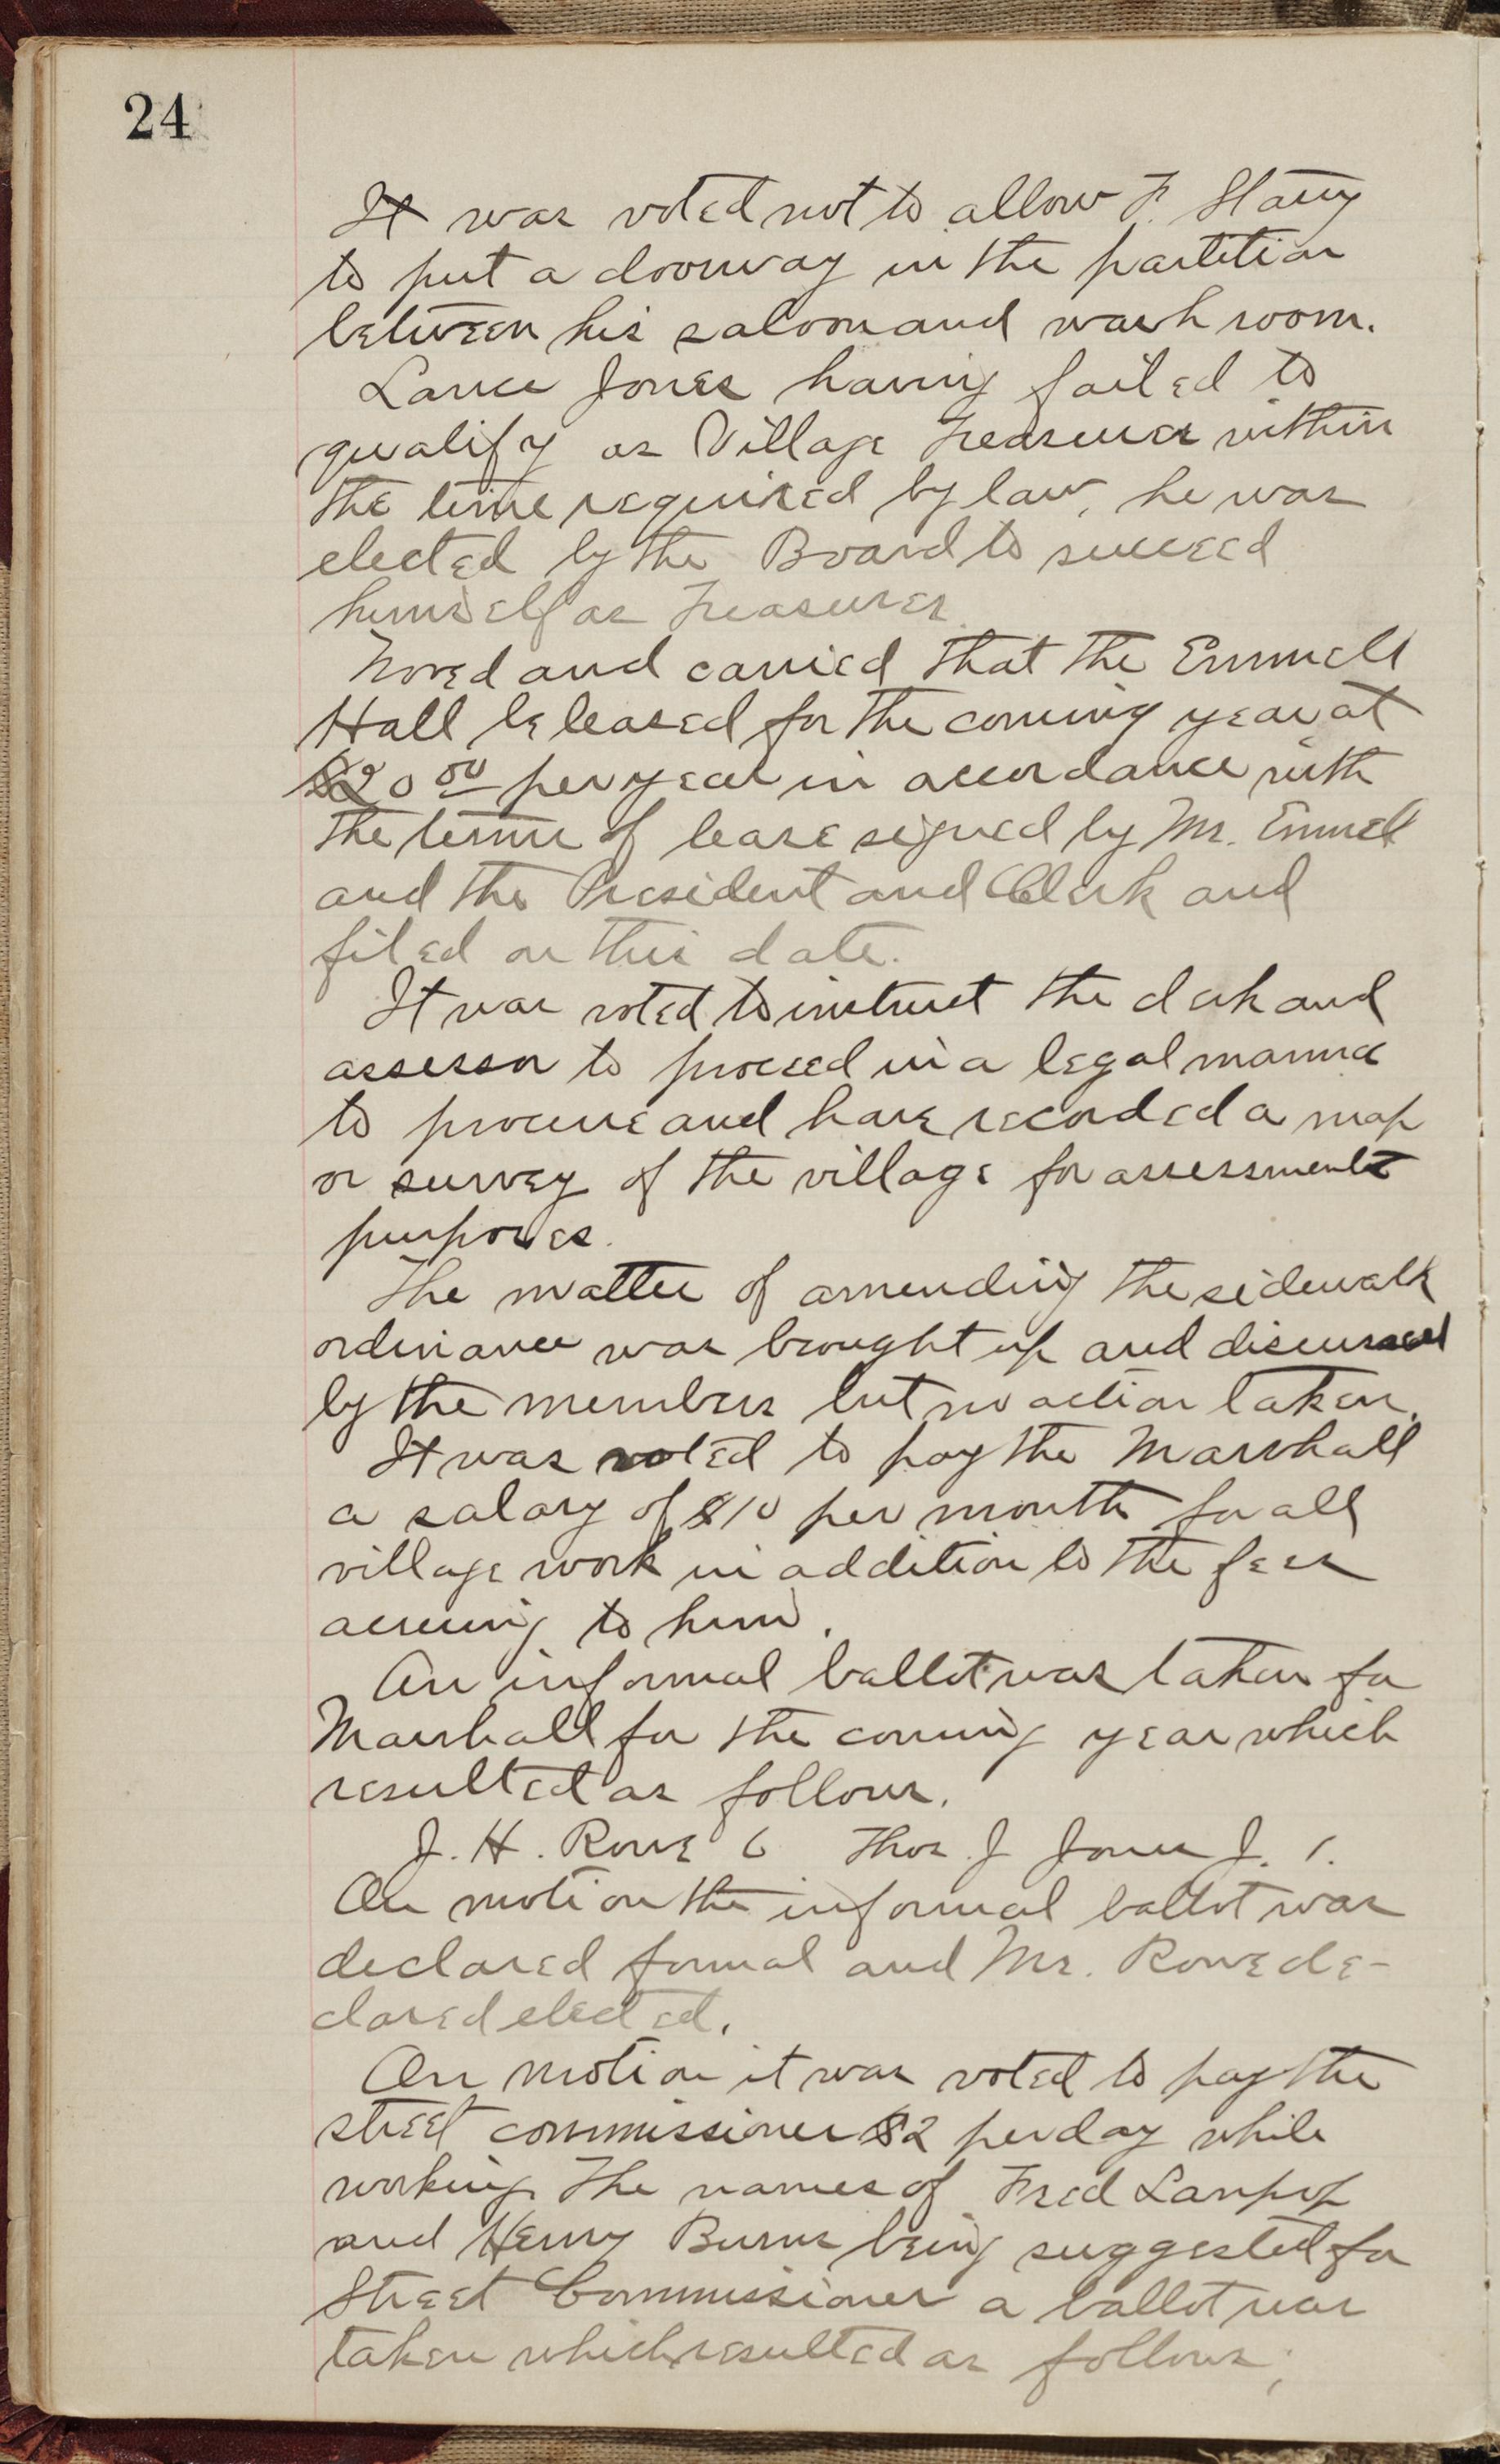 24
It was voted not to allow F. Starry
to put a doorway in the partition
between his saloon and wash room.
Lance Jones having failed to
qualify as Village Treasurer within
the time required by law, he was
elected by the Board to succeed
himself as Treasurer.
Moved and carried that the Emmett
Hall be leased for the coming year at
$20 00 per year in accordance with
the terms of lease signed by Mr. Emmett
and the President and Clerk and
filed on this date.
It was voted to instruct the clerk and
assessor to proceed in a legal manner
to procure and have recorded a map
or survey of the village for assessment
purposes.
The matter of amending the sidewalk
ordinance was brought up and discussed
by the members but no action taken.
It was voted to pay the Marshall
a salary of $10 per month for all
village work in addition to the fees
accruing to him.
An informal ballot was taken for
Marshall for the coming year which
resulted as follows.
J. H. Rowe 6 Thos. J Jones J. 1.
On motion the informal ballot was
declared formal and Mr. Rowe de-
clared elected.
On motion it was voted to pay the
street commissioner $2 per day while
working. The names of Fred Lanpop
and Henry Burns being suggested for
Street Commissioner a ballot was
taken which resulted as follows;